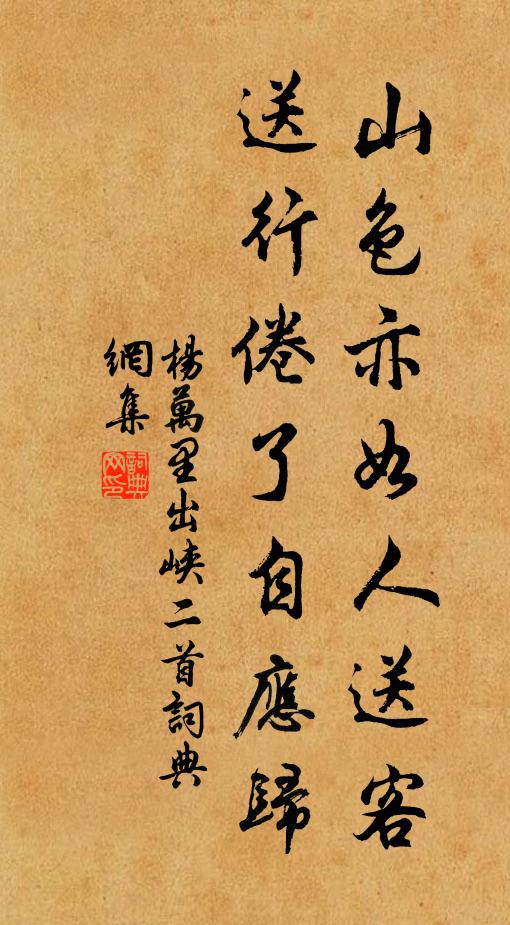 山色亦如人送客
送行倦了自應歸
楊萬里出峽二首詞典
網集
詞典
网印